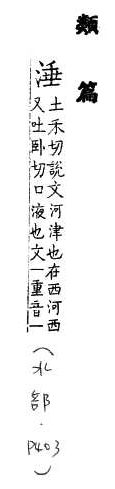 類篇
涶土禾切說文河津也在西河西
又吐臥切口液也文一重音一
(水部.P403)